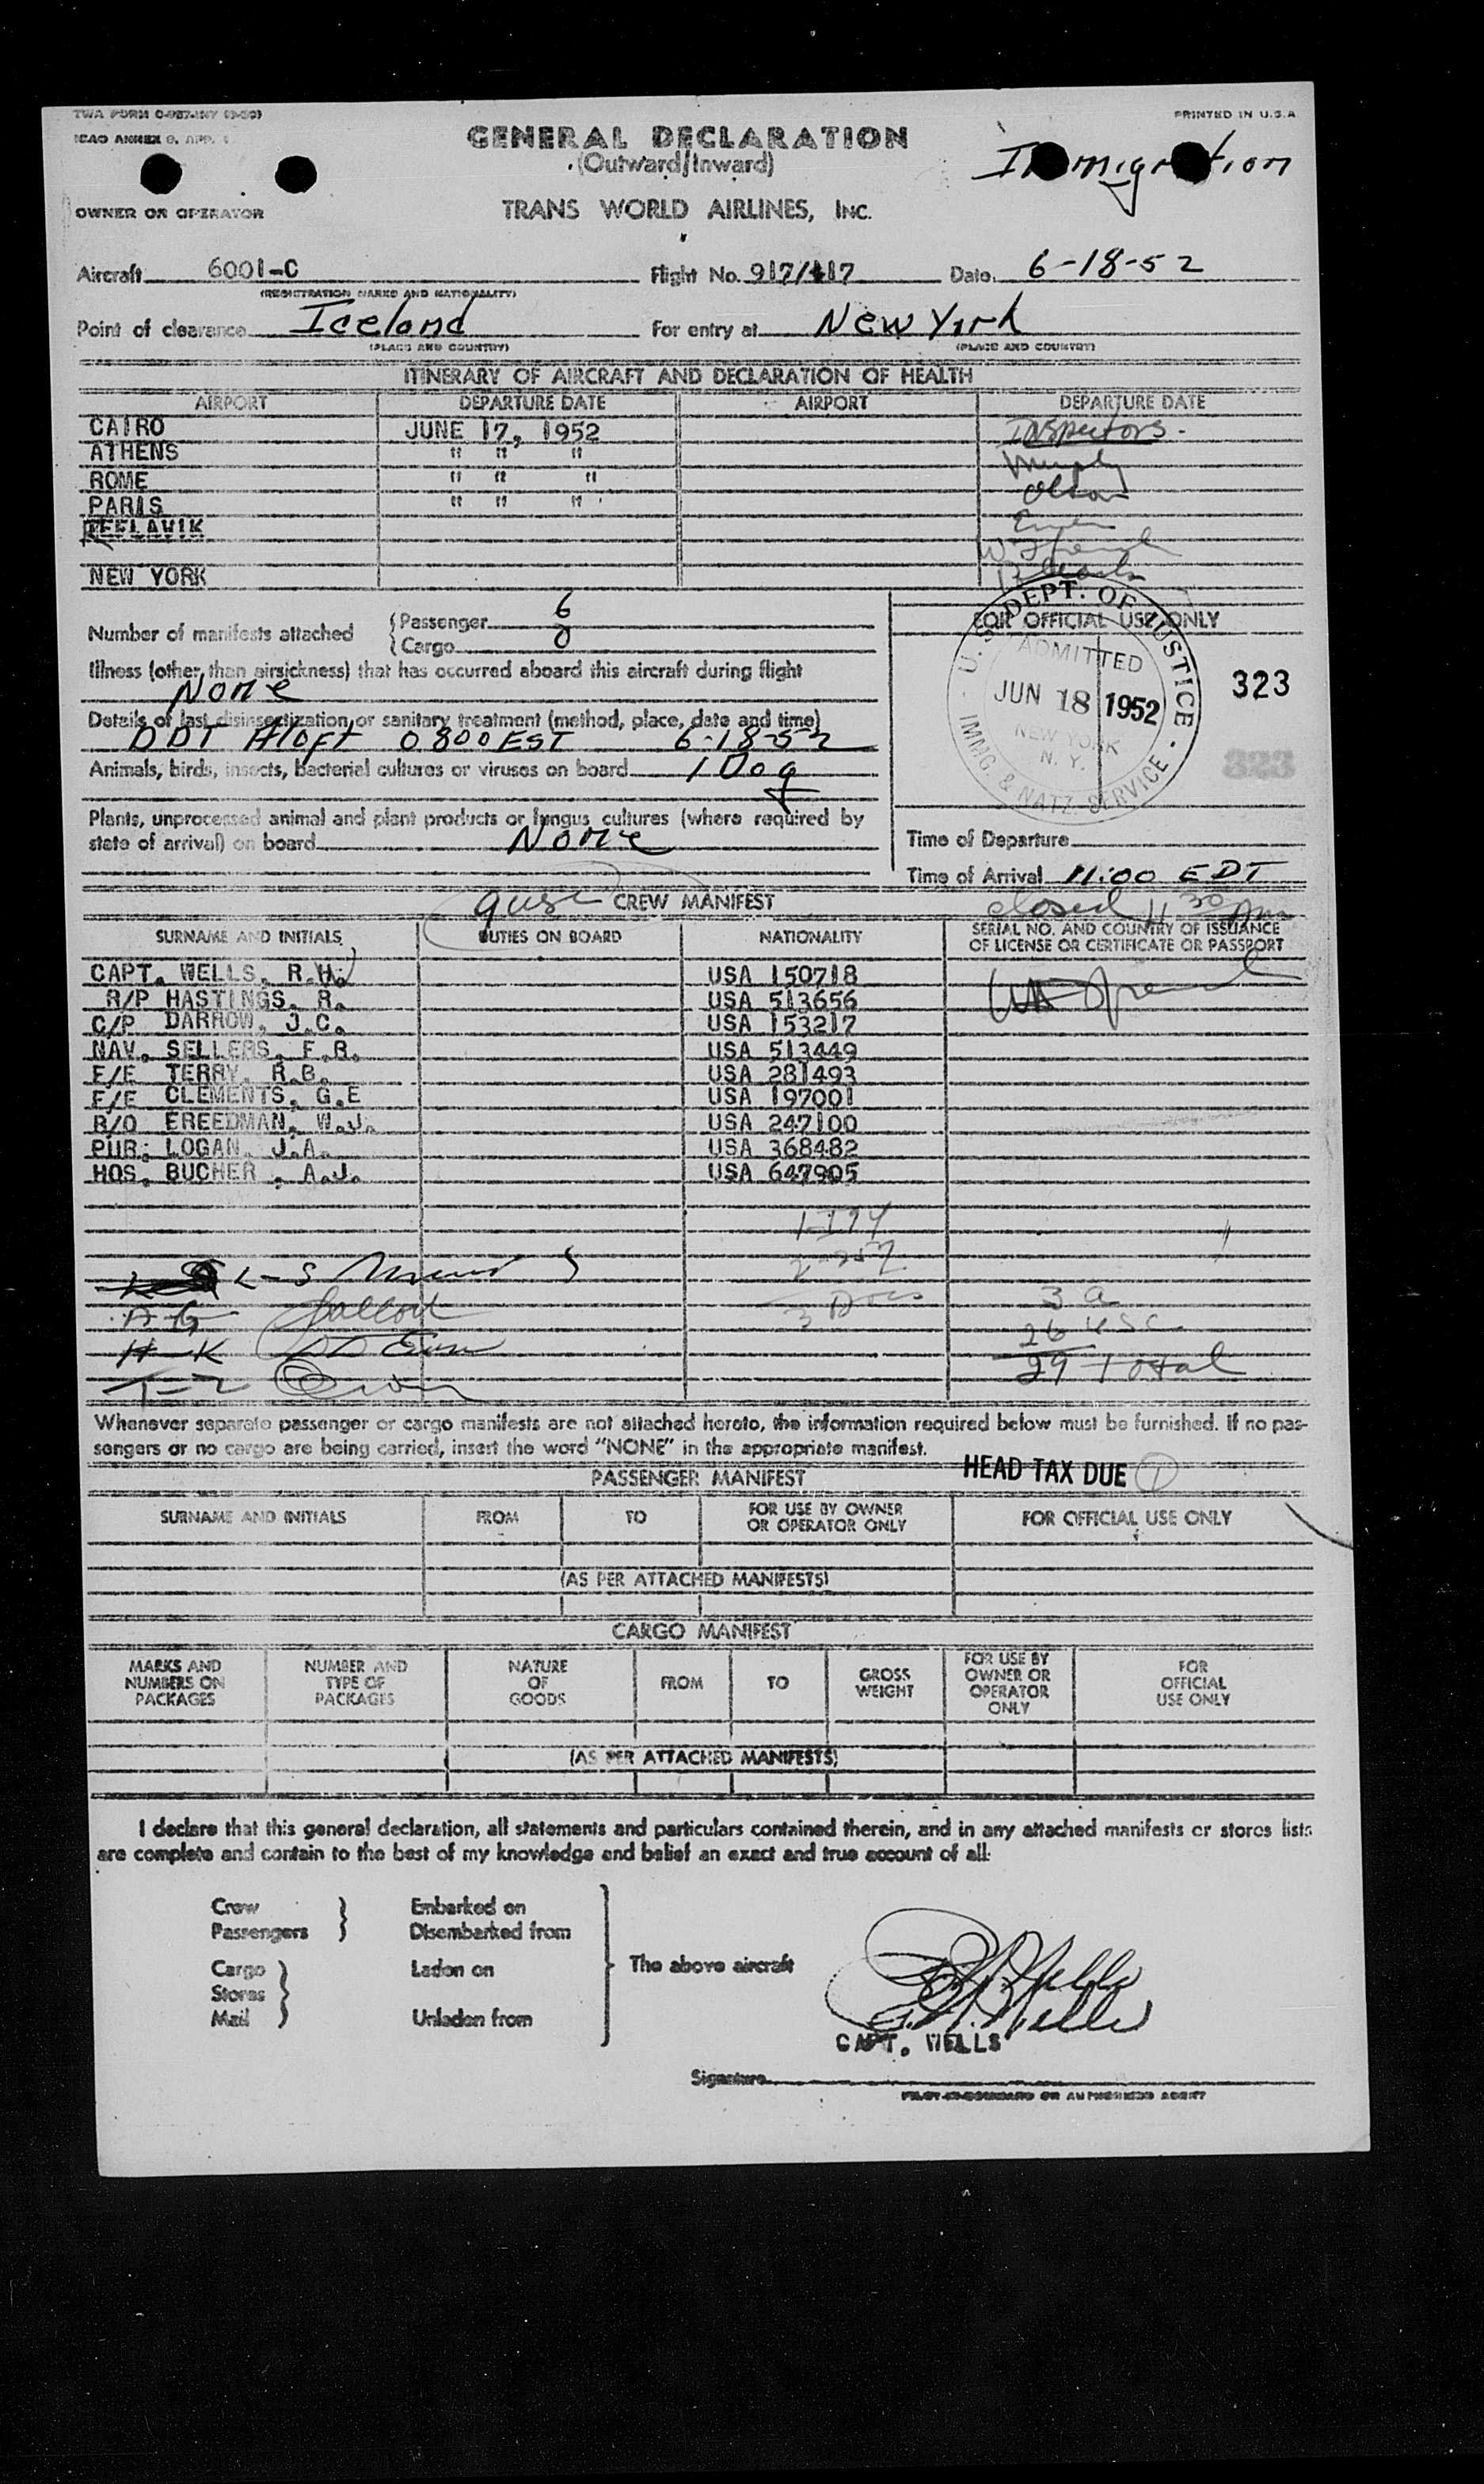 PRINTED IN U.S.A
ICAO ANNEX 9, APP. 1
GENERAL DECLARATION
(Outward/Inward)
Immigration
OWNER OR OPERATOR
TRANS WORLD AIRLINES, INC.
Aircraft 6001-C Flight No. 917/417 Date 6-18-52
(REGISTRATION MARKS AND NATIONALITY)
Point of clearance Iceland For entry at New York
(PLACE AND COUNTRY) (PLACE AND COUNTRY)
ITINERARY OF AIRCRAFT AND DECLARATION OF HEALTH
AIRPORT DEPARTURE DATE AIRPORT DEPARTURE DATE
CAIRO JUNE 17, 1952 Inspectors-
ATHENS " " " Murphy
ROME " " " Olson
PARIS " " "
KEFLAVIK
NEW YORK
Number of manifests attached
Passenger 6
Cargo 0
FOR OFFICIAL USE ONLY
U. S. DEPT. OF JUSTICE
ADMITTED
JUN 18 1952
NEW YORK
N. Y.
IMMG. & NATZ. SERVICE
323
323
Illness (other than airsickness) that has occurred aboard this aircraft during flight
None
Details of last disinsectization or sanitary treatment (method, place, date and time)
DDT Aloft 0800 EST 6-18-52
Animals, birds, insects, bacterial cultures or viruses on board 1 Dog
Plants, unprocessed animal and plant products or fungus cultures (where required by
state of arrival) on board None
Time of Departure
Time of Arrival 11:00 EDT
closed 11 30 Am
CREW MANIFEST
SURNAME AND INITIALS DUTIES ON BOARD NATIONALITY SERIAL NO. AND COUNTRY OF ISSUANCE
OF LICENSE OR CERTIFICATE OR PASSPORT
CAPT. WELLS, R.H. USA 150718
R/P HASTINGS, R. USA 513656
C/P DARROW, J.C. USA 153217
NAV. SELLERS, F.R. USA 513449
F/E TERRY, R.B. USA 281493
F/E CLEMENTS, G.E USA 197001
R/O FREEDMAN, W.J. USA 247100
PUR. LOGAN, J.A. USA 368482
HOS. BUCHER, A.J. USA 647905
1-I94
2-257
L-S
3 Docs 3 a
A-G 26 USC
H-K 29 Total
T-Z
Whenever separate passenger or cargo manifests are not attached hereto, the information required below must be furnished. If no pas-
sengers or no cargo are being carried, insert the word "NONE" in the appropriate manifest.
HEAD TAX DUE 1
PASSENGER MANIFEST
SURNAME AND INITIALS FROM TO FOR USE BY OWNER
OR OPERATOR ONLY FOR OFFICIAL USE ONLY
(AS PER ATTACHED MANIFESTS)
CARGO MANIFEST
MARKS AND
NUMBERS ON
PACKAGES
NUMBER AND
TYPE OF
PACKAGES
NATURE
OF
GOODS
FROM
TO
GROSS
WEIGHT
FOR USE BY
OWNER OR
OPERATOR
ONLY
FOR
OFFICIAL
USE ONLY
(AS PER ATTACHED MANIFESTS)
I declare that this general declaration, all statements and particulars contained therein, and in any attached manifests or stores lists
are complete and contain to the best of my knowledge and belief an exact and true account of all:
Crew Embarked on
Passengers Disembarked from
Cargo Laden on The above aircraft
Stores
Mail Unladen from
R.H. Wells
CAPT. WELLS
Signature
PILOT-IN-COMMAND OR AUTHORISED AGENT